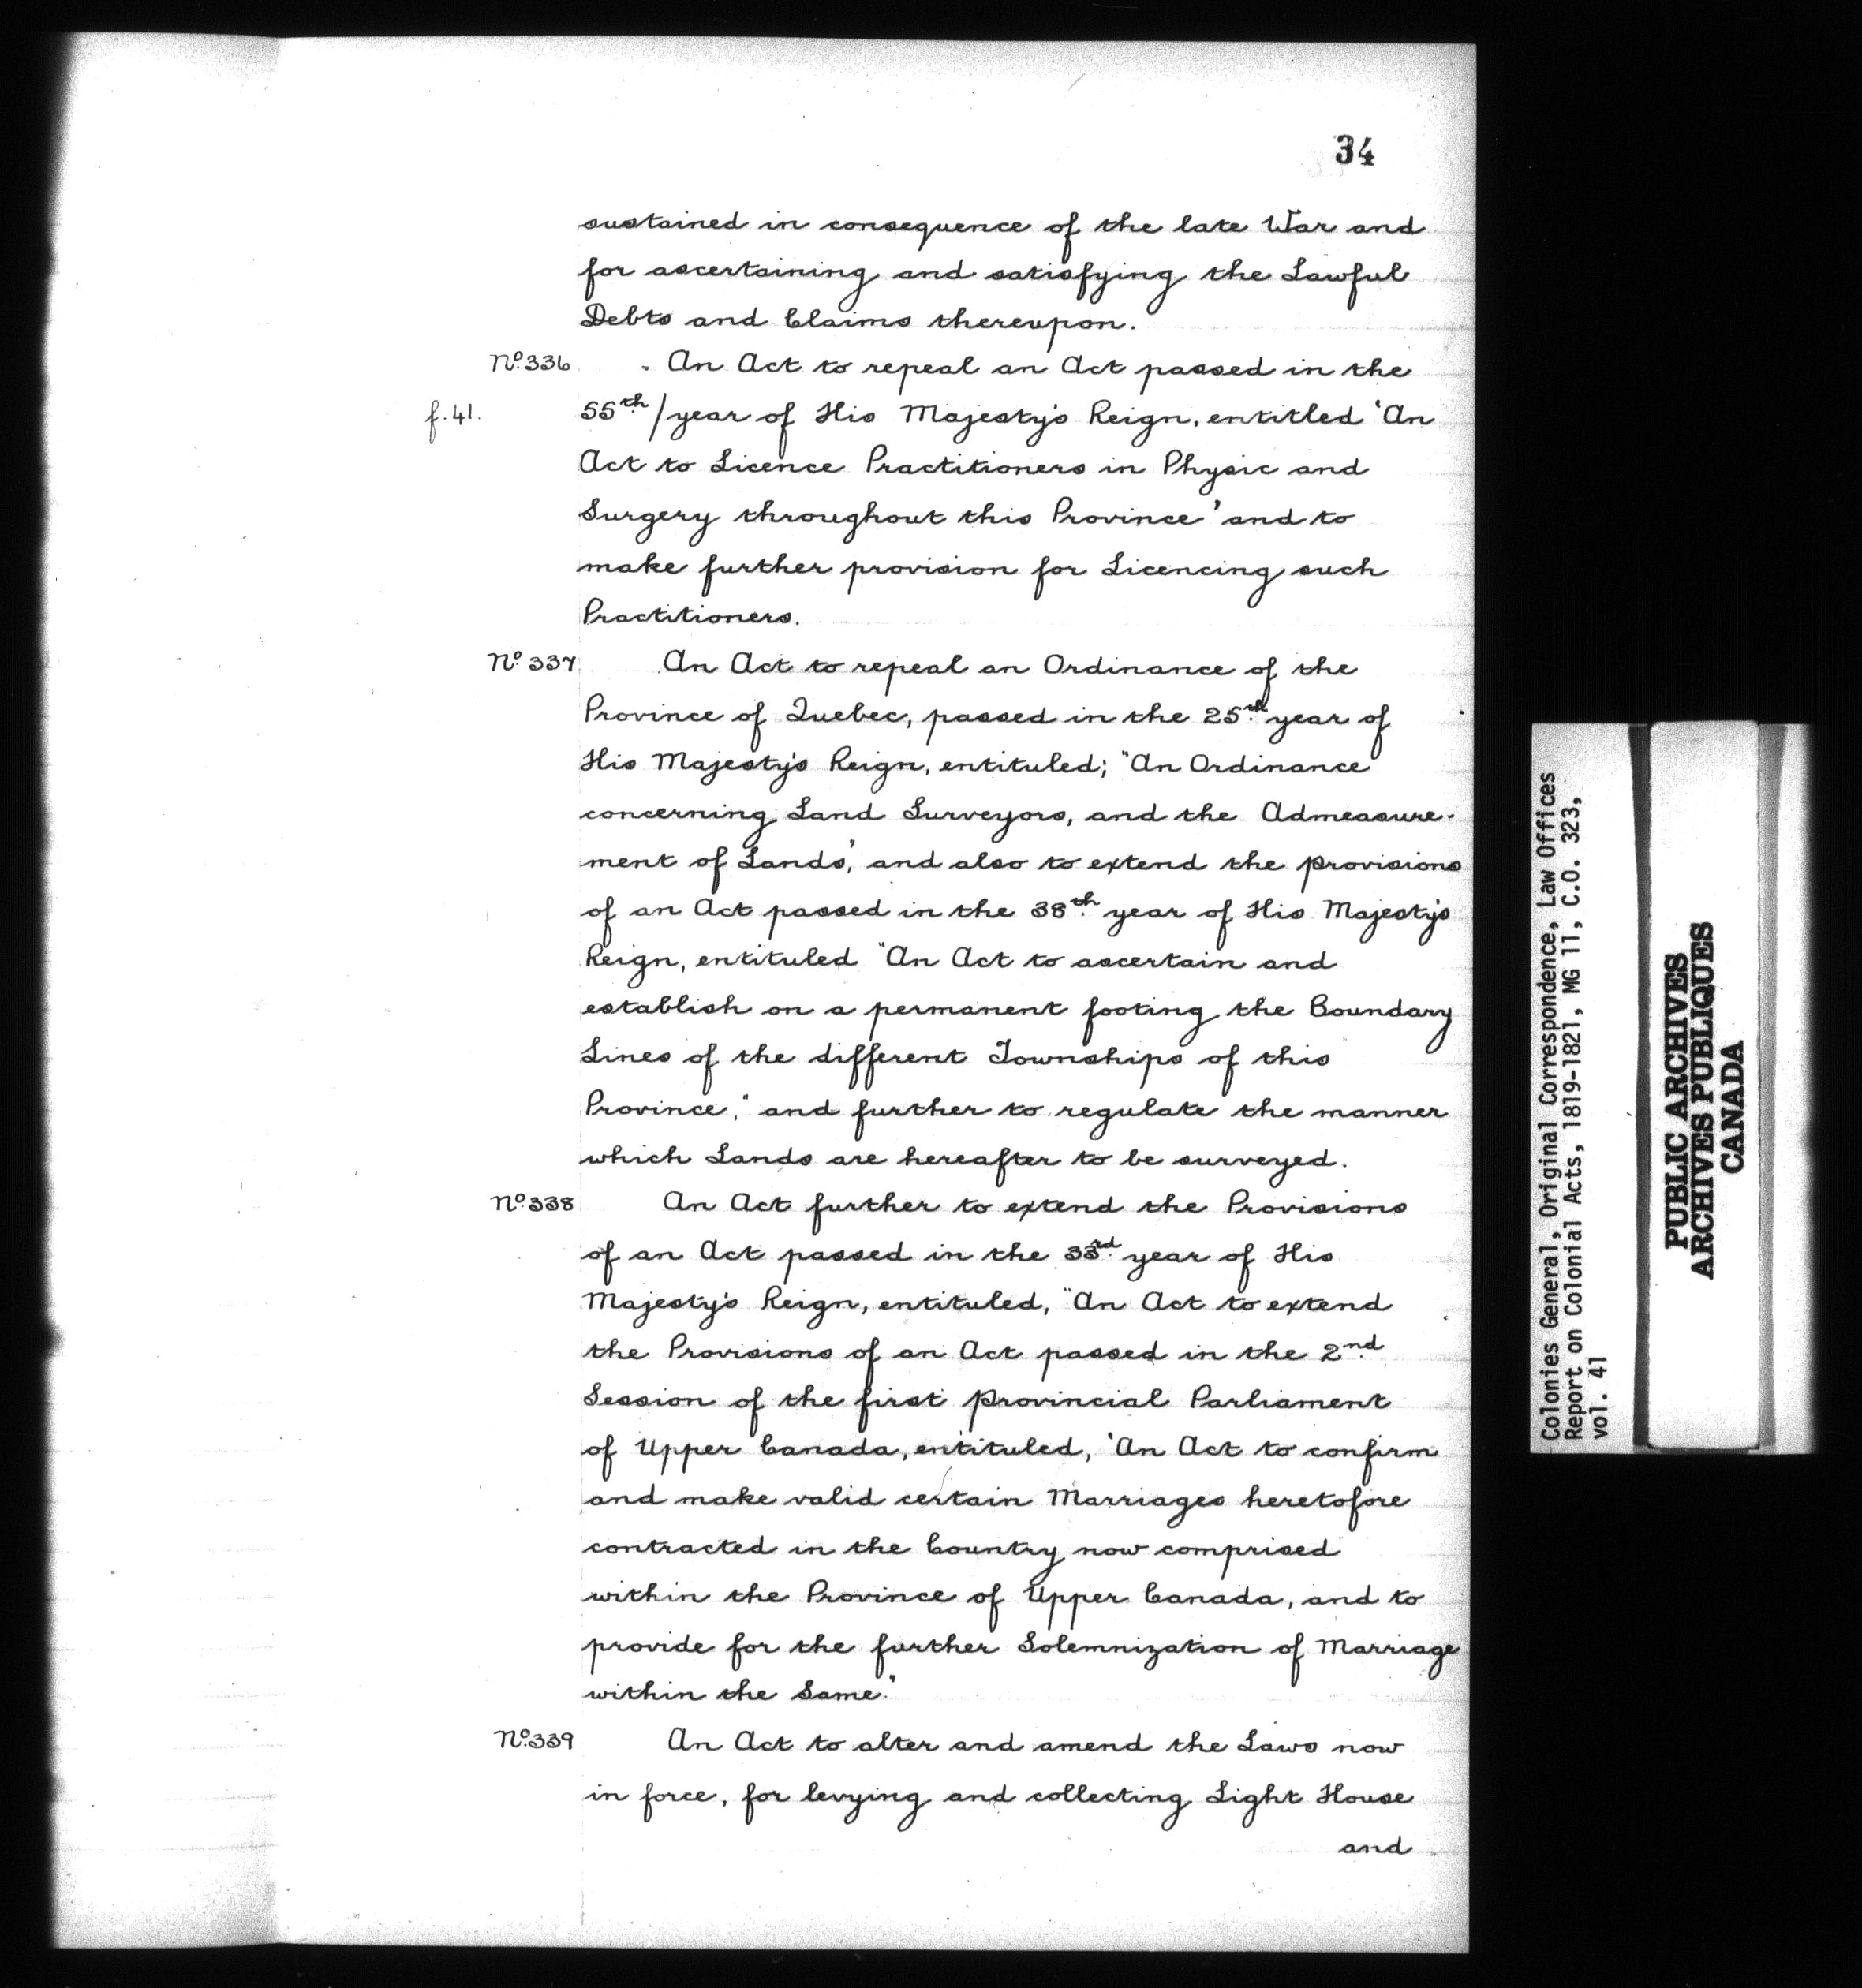 34
sustained in consequence of the late War and
for ascertaining and satisfying the Lawful
Debts and Claims thereupon.
No. 336 An Act to repeal an Act passed in the
f. 41. 55th / year of His Majesty's Reign, entitled 'An
Act to Licence Practitioners in Physic and
Surgery throughout this Province' and to
make further provision for Licencing such
Practitioners.
No. 337 An Act to repeal an Ordinance of the
Province of Quebec, passed in the 25th year of
His Majesty's Reign, entituled; "An Ordinance
concerning Land Surveyors, and the Admeasure-
ment of Lands,' and also to extend the provisions
of an Act passed in the 38th year of His Majesty's
Reign, entituled "An Act to ascertain and
establish on a permanent footing the Boundary
Lines of the different Townships of this
Province," and further to regulate the manner
which Lands are hereafter to be surveyed.
No. 338 An Act further to extend the Provisions
of an Act passed in the 33rd year of His
Majesty's Reign, entituled, "An Act to extend
the Provisions of an Act passed in the 2nd
Session of the first Provincial Parliament
of Upper Canada, entituled, 'An Act to confirm
and make valid certain Marriages heretofore
contracted in the Country now comprised
within the Province of Upper Canada, and to
provide for the further Solemnization of Marriage
within the Same."
No. 339 An Act to alter and amend the Laws now
in force, for levying and collecting Light House
and
Colonies General, Original Correspondence, Law Offices
Report on Colonial Acts, 1819-1821, MG 11, C.O. 323,
vol. 41
PUBLIC ARCHIVES
ARCHIVES PUBLIQUES
CANADA